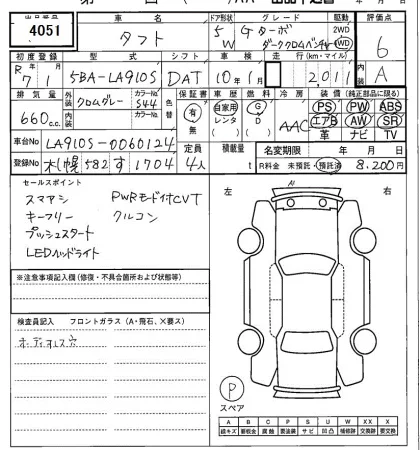 出品番号 車名 ドア形状 グレード 駆動 評価点
4051 タフト 5 W Gターボ ダーククロムベンチャー 2WD 4WD 6
初度登録 型式 シフト 車検 走行(km・マイル) 内装
R 7/1 5BA-LA910S DAT 10年1月 2,011 A
排気量 外装 クロムグレー カラーNo. S44 色替 保証書 車歴 燃料 冷房 装備(純正部品に限る)
660c.c. 内装 カラーNo. 有 無 自家用 レンタ G D AAC PS PW ABS
エアB AW SR
革 ナビ TV
車台No LA910S-0060124 定員 積載量 名変期限 年 月 日
登録No 札幌 582 す 1704 4人 t R料金 未預託・預託済 8,200円
セールスポイント
スマアシ PWRモード付CVT
キーフリー クルコン
プッシュスタート
LEDヘッドライト
左 右
※注意事項記入欄(修復・不具合箇所および状態等)
検査員記入 フロントガラス(A・飛石、×要ス)
オーディオレス穴
A1
P
スペア
A B C P S U W X XX
線キズ 要鈑金 腐蝕 要塗装 サビ 凹凸 補修跡 交換跡 要交換